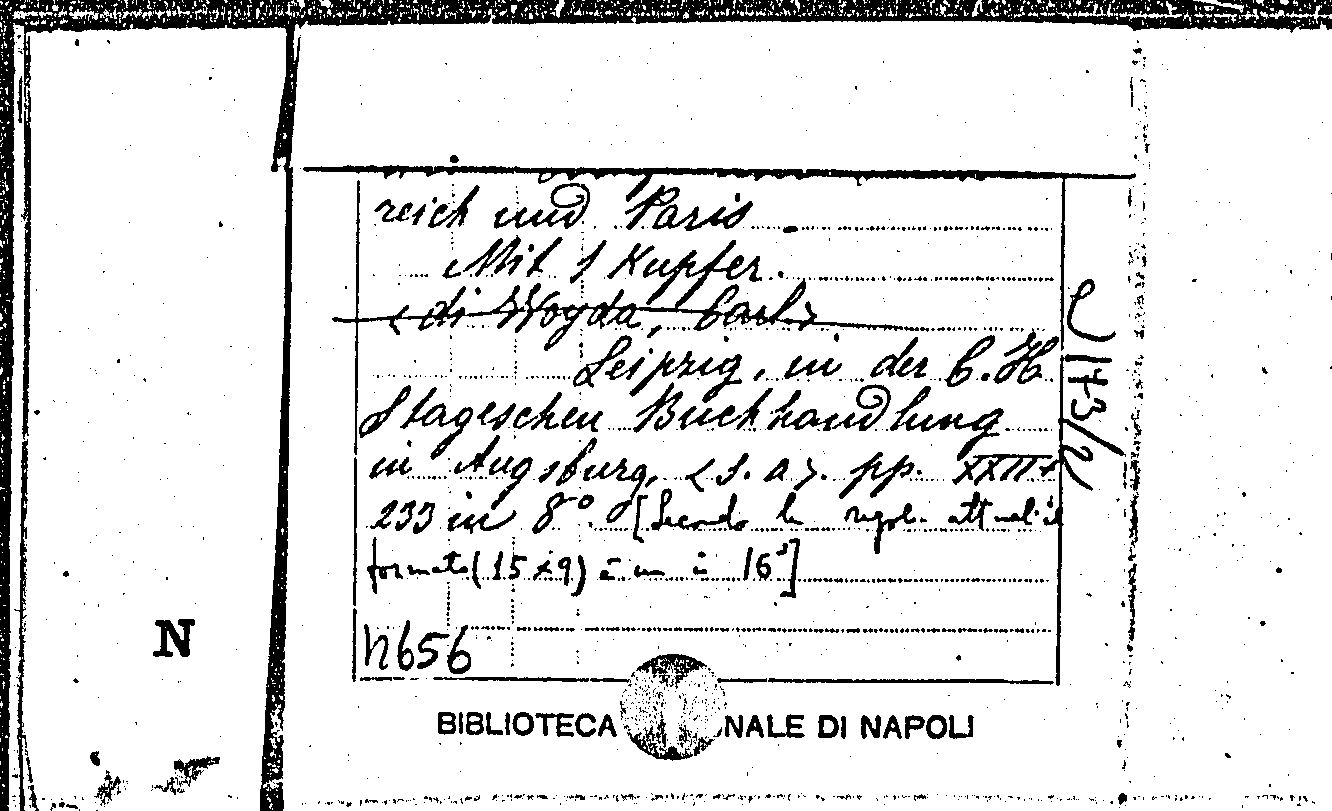 reich und Paris.
Mit 1 Kupfer.
<di Woyda, Carl>
Leipzig, in der C. H.
Stageschen Buchhandlung
in Augsburg, <s. a>. pp. XXIII+
233 in 8°. [Secondo le regole attuali il
formato (15x9) è un in 16°]
h656
N
BIBLIOTECA NALE DI NAPOLI